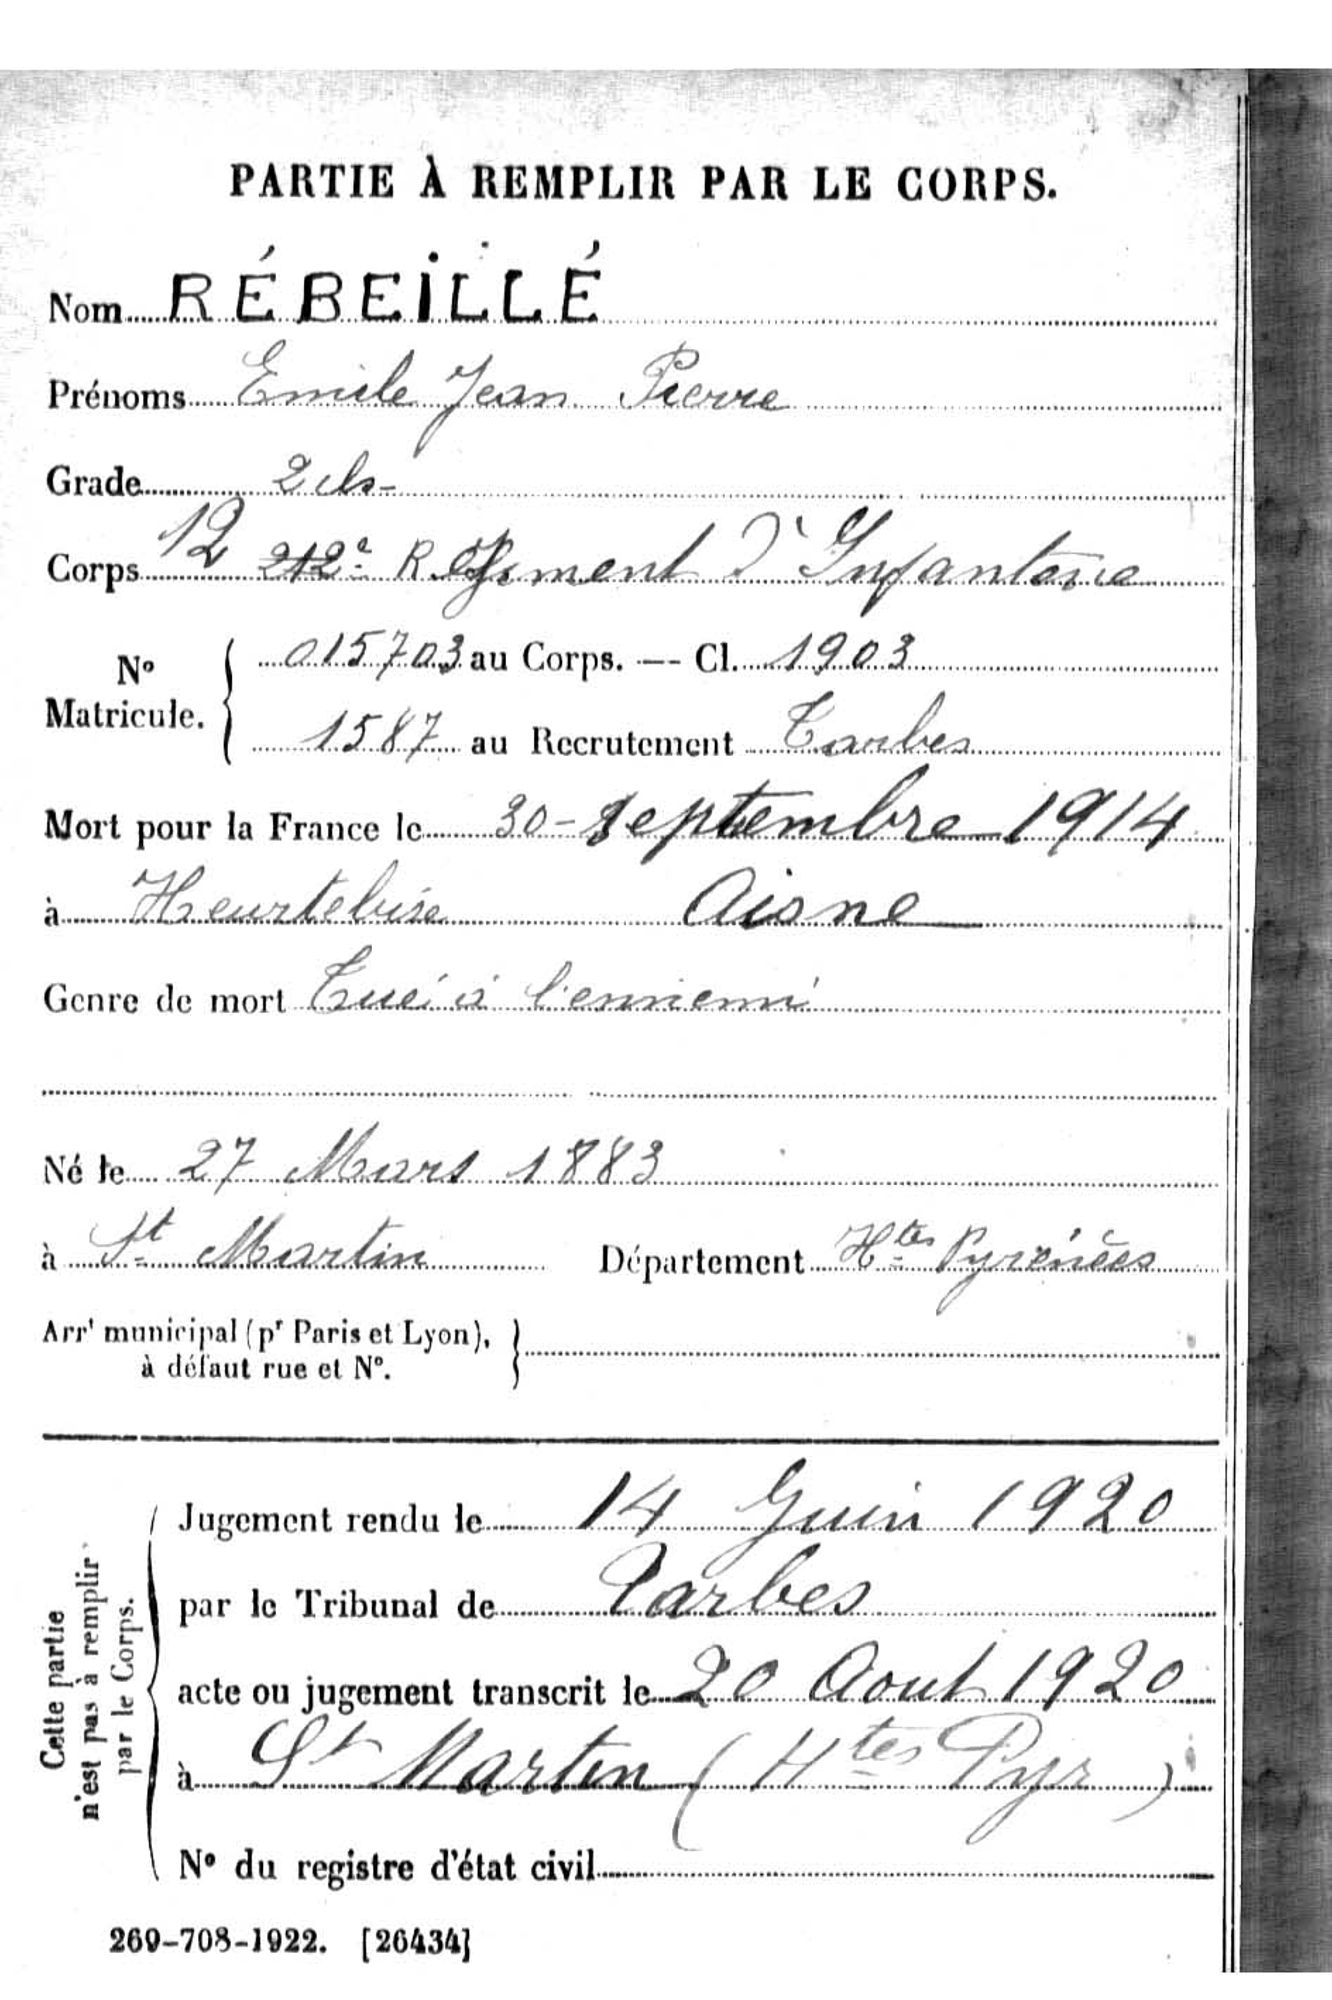 PARTIE À REMPLIR PAR LE CORPS.
Nom RÉBEILLÉ
Prénoms Emile Jean Pierre
Grade 2 cls-
Corps 12 212e Régiment d'Infanterie
No Matricule. { 015703 au Corps. — Cl. 1903
1587 au Recrutement Tarbes
Mort pour la France le 30 - septembre 1914
à Heurtebise Aisne
Genre de mort Tué à l'ennemi
Né le 27 Mars 1883
à St Martin Département Htes Pyrénées
Arrt municipal (pr Paris et Lyon), }
à défaut rue et No.
Cette partie
n'est pas à remplir
par le Corps.
Jugement rendu le 14 Juin 1920
par le Tribunal de Tarbes
acte ou jugement transcrit le 20 Aout 1920
à St Martin (Htes Pyr)
No du registre d'état civil
269-708-1922. [26434]